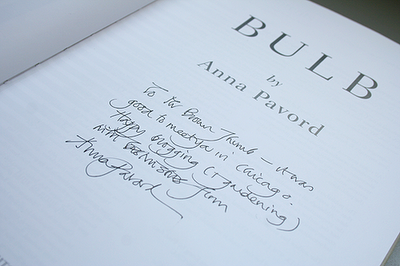 BULB
by
Anna Pavord
To Mr Brown Thumb – it was
good to meet you in Chicago.
Happy blogging (+ gardening)
with best wishes from
Anna Pavord